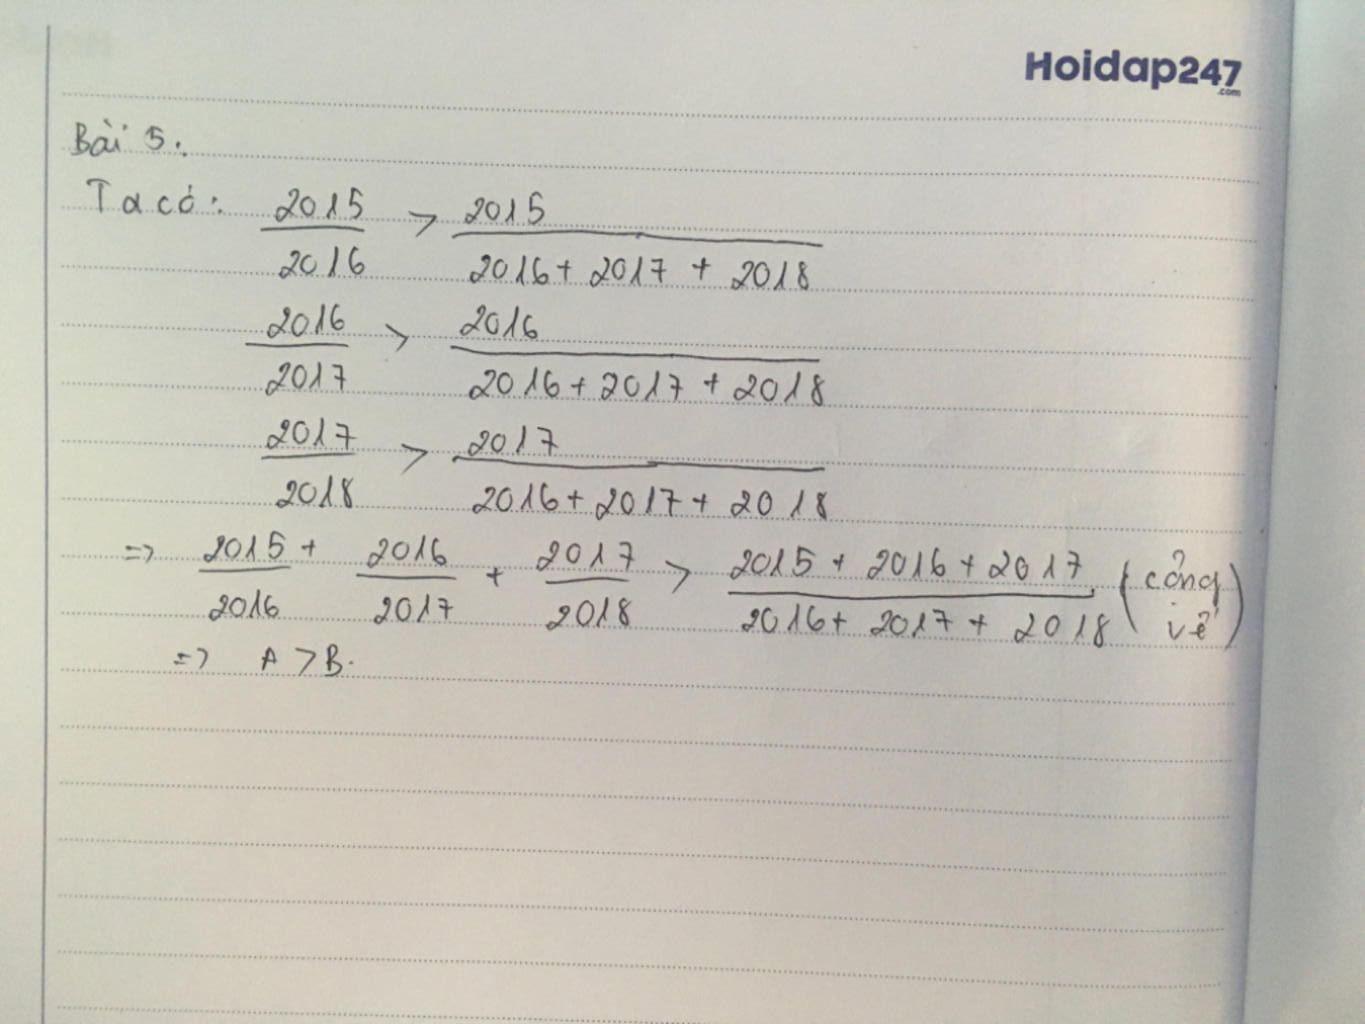 Hoidap247
.com
Bài 5.
Ta có: 2015/2016 > 2015/(2016 + 2017 + 2018)
2016/2017 > 2016/(2016 + 2017 + 2018)
2017/2018 > 2017/(2016 + 2017 + 2018)
=> 2015/2016 + 2016/2017 + 2017/2018 > (2015 + 2016 + 2017)/(2016 + 2017 + 2018) (cộng vế)
=> A > B.